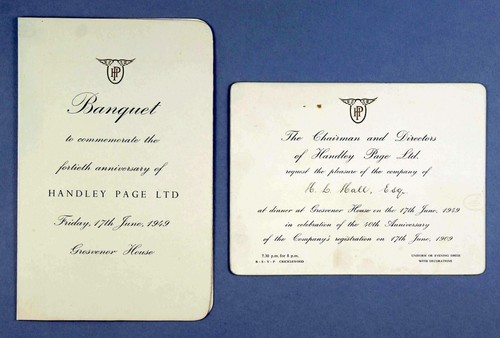 HP
Banquet
to commemorate the
fortieth anniversary of
HANDLEY PAGE LTD
Friday, 17th June, 1949
Grosvenor House
HP
The Chairman and Directors
of Handley Page Ltd.
request the pleasure of the company of
H. L. Hall, Esq.
at dinner at Grosvenor House on the 17th June, 1949
in celebration of the 40th Anniversary
of the Company's registration on 17th June, 1909
7.30 p.m. for 8 p.m.
R·S·V·P CRICKLEWOOD
UNIFORM OR EVENING DRESS
WITH DECORATIONS